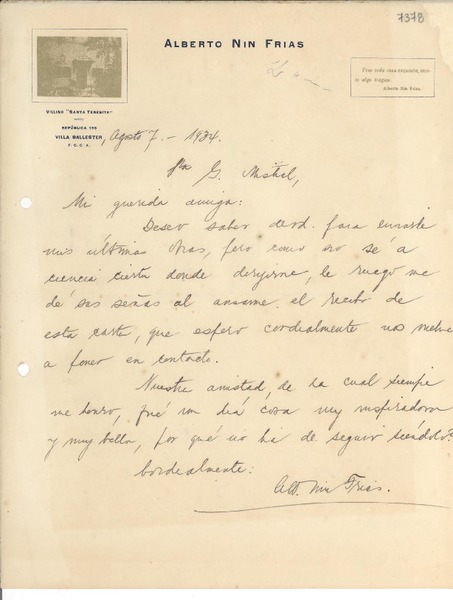 7378
ALBERTO NIN FRIAS
Tras toda cosa exquisita, existe algo trágico.
Alberto Nin Frías.
VILLINO "SANTA TERESITA"
REPÚBLICA 155
VILLA BALLESTER
F. C. C. A.
Agosto 7.- 1934.
Sra G. Mistral,
Mi querida amiga:
Deseo saber de Vd. para enviarle
mis últimas obras, pero como no sé a
ciencia cierta donde dirijirme, le ruego me
dé sus señas al avisarme el recibo de
esta carta, que espero cordialmente nos vuelva
a poner en contacto.
Nuestra amistad, de la cual siempre
me honro, fué un día cosa muy inspiradora
y muy bella, por qué no ha de seguir siéndolo?
Cordialmente:
Alb. Nin Frías.